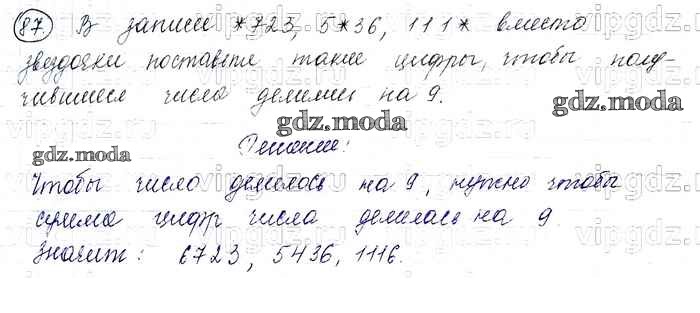 87) В записи *723, 5*36, 111* вместо
звездочки поставьте такие цифры, чтобы полу-
чившиеся числа делились на 9.
gdz.moda
gdz.moda
Решение:
gdz.moda
Чтобы число делилось на 9, нужно чтобы
сумма цифр числа делилась на 9
Значит: 6723, 5436, 1116.